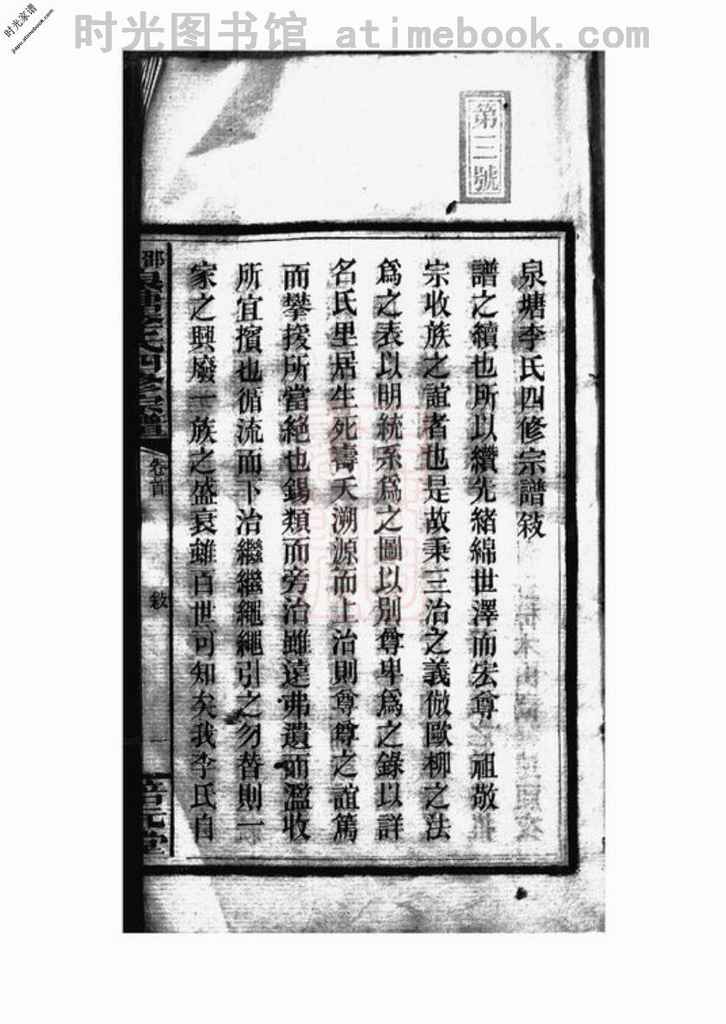 时光家谱
jiapu.atimebook.com
时光图书馆 atimebook.com
第三號
泉塘李氏四修宗譜敍
譜之續也所以纘先緒綿世澤而宏尊祖敬
宗收族之誼者也是故秉三治之義倣歐柳之法
爲之表以明統系爲之圖以別尊卑爲之錄以詳
名氏里居生死壽夭溯源而上治則尊尊之誼篤
而攀援所當絕也錫類而旁治雖遠弗遺而濫收
所宜擯也循流而下治繼繼繩繩引之勿替則一
家之興廢一族之盛衰雖百世可知矣我李氏自
邵泉塘李氏四修宗譜
卷首
敍
一